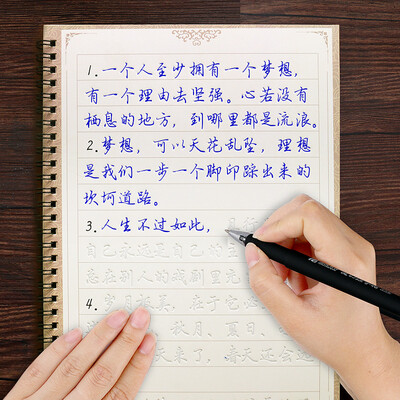 1.一个人至少拥有一个梦想,
有一个理由去坚强。心若没有
栖息的地方,到哪里都是流浪。
2.梦想,可以天花乱坠,理想
是我们一步一个脚印踩出来的
坎坷道路。
3.人生不过如此,
自己永远是自己的
总在别人的戏剧里充
4.岁月极美,在于它必
秋月、夏日、
天来了,春天还会远